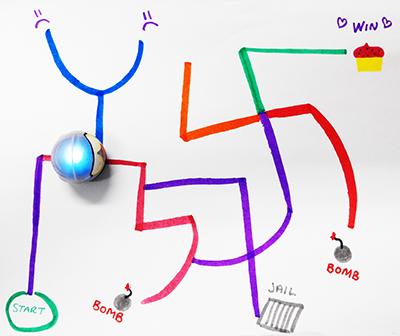 WIN
START
BOMB
JAIL
BOMB